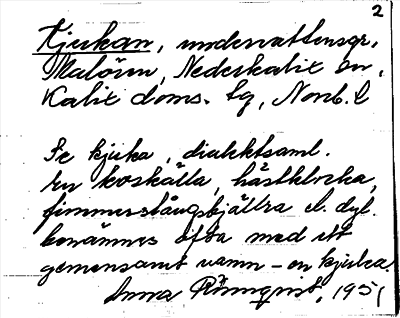 2
Kjurkan, undervattensgr.,
Malören, Nederkalix sn,
Kalix doms. tg, Norrb. l
Se kjurka, dialektsaml.
En koskälla, hästklocka,
fimmerstångsbjällra el. dyl.
benämnes ofta med ett
gemensamt namn - en kjurka.
Anna Rönnqvist, 1951